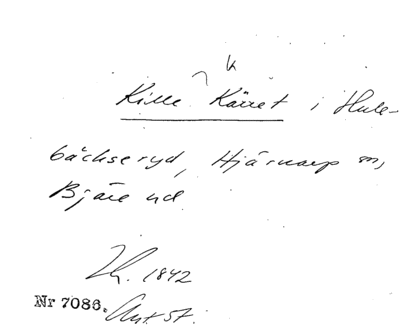 k
Kille Kärret i Hule-
bäckseryd, Hjärnarp sn,
Bjäre hd.
1842
Nr 7086. Ant. St.